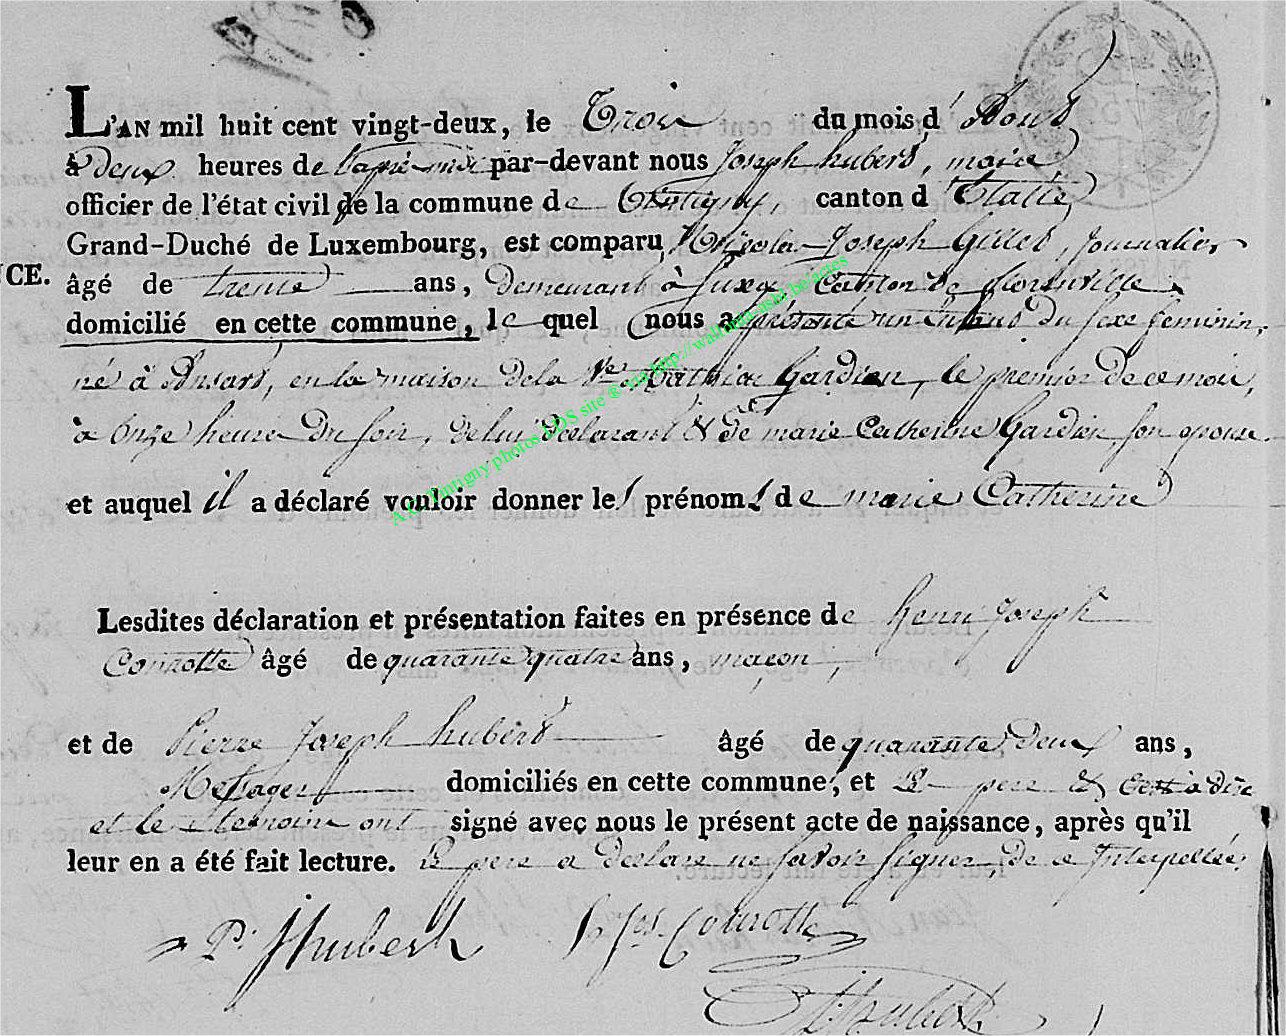 L'AN mil huit cent vingt-deux, le Trois du mois d'Aout
à deux heures de l'après-midi par-devant nous Joseph hubert, maire
officier de l'état civil de la commune de Tintigny, canton d'Etalle
Grand-Duché de Luxembourg, est comparu, Nicolas Joseph Gillet, journalier
NCE.
âgé de trente ans, demeurant à Suxy, canton de florenville
domicilié en cette commune, le quel nous a présenté un Enfant du sexe feminin,
né à Ansart, en la maison de la Ve Mathias Gardien, le premier de ce mois,
à onze heures du soir, de lui déclarant & de marie Catherine Gardien, son epouse.
et auquel il a déclaré vouloir donner les prénoms de marie Catherine
Lesdites déclaration et présentation faites en présence de henri joseph
Conrotte âgé de quarante quatre ans, maçon,
et de Pierre Joseph hubert âgé de quarante deux ans,
Messager domiciliés en cette commune, et Le pere & cest à dire
et les temoins ont signé avec nous le présent acte de naissance, après qu'il
leur en a été fait lecture. Le pere a declaré ne savoir signer, de ce Interpellé.
P. J hubert h Jos. Conrotte
J. hubert
A.C. Tintigny photos LDS site ® via http://wallonia-asbl.be/actes